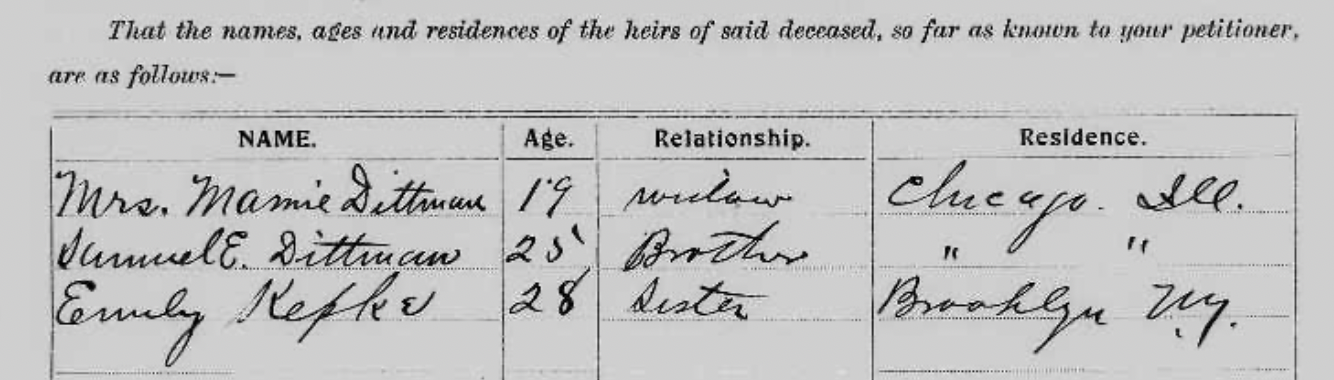 That the names, ages and residences of the heirs of said deceased, so far as known to your petitioner,
are as follows:—
NAME. Age. Relationship. Residence.
Mrs. Mamie Dittman 19 widow Chicago. Ill.
Samuel E. Dittman 25 Brother " "
Emily Kepke 28 Sister Brooklyn N.Y.